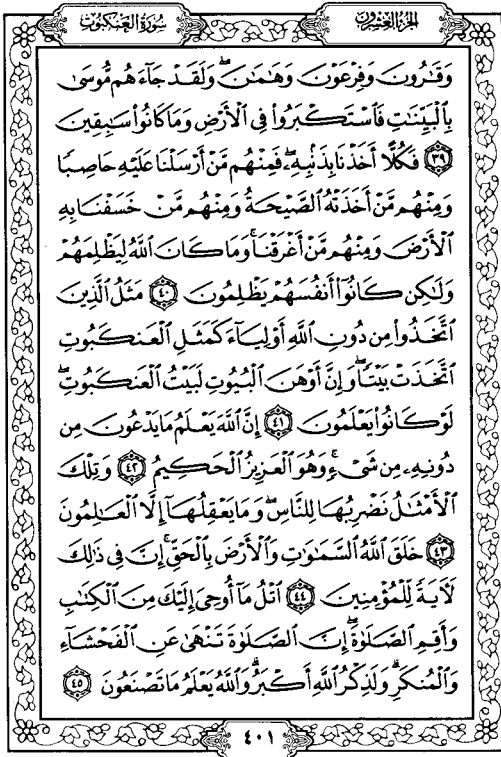 سورة العنكبوت
الجزء العشرون
وَقَٰرُونَ وَفِرْعَوْنَ وَهَٰمَٰنَ ۖ وَلَقَدْ جَآءَهُم مُّوسَىٰ
بِٱلْبَيِّنَٰتِ فَٱسْتَكْبَرُوا۟ فِى ٱلْأَرْضِ وَمَا كَانُوا۟ سَٰبِقِينَ
﴿٣٩﴾ فَكُلًّا أَخَذْنَا بِذَنۢبِهِۦ ۖ فَمِنْهُم مَّنْ أَرْسَلْنَا عَلَيْهِ حَاصِبًا
وَمِنْهُم مَّنْ أَخَذَتْهُ ٱلصَّيْحَةُ وَمِنْهُم مَّنْ خَسَفْنَا بِهِ
ٱلْأَرْضَ وَمِنْهُم مَّنْ أَغْرَقْنَا ۚ وَمَا كَانَ ٱللَّهُ لِيَظْلِمَهُمْ
وَلَٰكِن كَانُوٓا۟ أَنفُسَهُمْ يَظْلِمُونَ ﴿٤٠﴾ مَثَلُ ٱلَّذِينَ
ٱتَّخَذُوا۟ مِن دُونِ ٱللَّهِ أَوْلِيَآءَ كَمَثَلِ ٱلْعَنكَبُوتِ
ٱتَّخَذَتْ بَيْتًا ۖ وَإِنَّ أَوْهَنَ ٱلْبُيُوتِ لَبَيْتُ ٱلْعَنكَبُوتِ ۖ
لَوْ كَانُوا۟ يَعْلَمُونَ ﴿٤١﴾ إِنَّ ٱللَّهَ يَعْلَمُ مَا يَدْعُونَ مِن
دُونِهِۦ مِن شَىْءٍ ۚ وَهُوَ ٱلْعَزِيزُ ٱلْحَكِيمُ ﴿٤٢﴾ وَتِلْكَ
ٱلْأَمْثَٰلُ نَضْرِبُهَا لِلنَّاسِ ۖ وَمَا يَعْقِلُهَآ إِلَّا ٱلْعَٰلِمُونَ
﴿٤٣﴾ خَلَقَ ٱللَّهُ ٱلسَّمَٰوَٰتِ وَٱلْأَرْضَ بِٱلْحَقِّ ۚ إِنَّ فِى ذَٰلِكَ
لَءَايَةً لِّلْمُؤْمِنِينَ ﴿٤٤﴾ ٱتْلُ مَآ أُوحِىَ إِلَيْكَ مِنَ ٱلْكِتَٰبِ
وَأَقِمِ ٱلصَّلَوٰةَ ۖ إِنَّ ٱلصَّلَوٰةَ تَنْهَىٰ عَنِ ٱلْفَحْشَآءِ
وَٱلْمُنكَرِ ۗ وَلَذِكْرُ ٱللَّهِ أَكْبَرُ ۗ وَٱللَّهُ يَعْلَمُ مَا تَصْنَعُونَ ﴿٤٥﴾
٤٠١